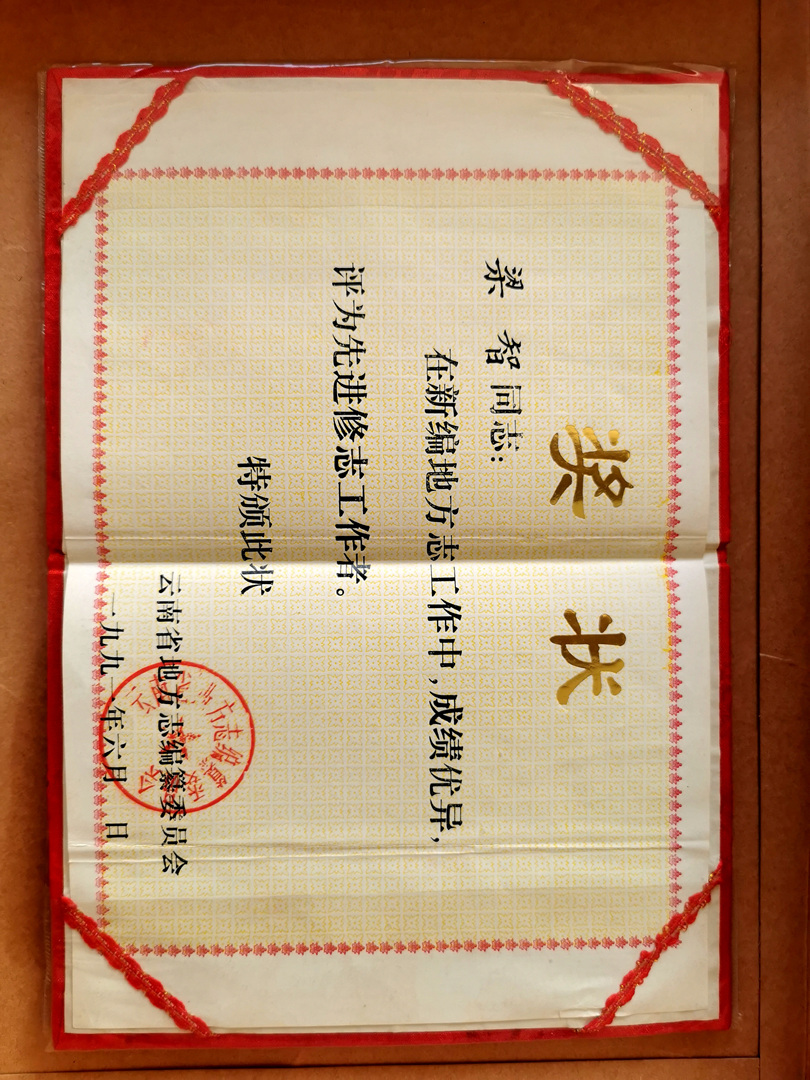 奖状
梁智同志:
在新编地方志工作中,成绩优异,
评为先进修志工作者。
特颁此状
云南省地方志编纂委员会
一九九一年六月 日